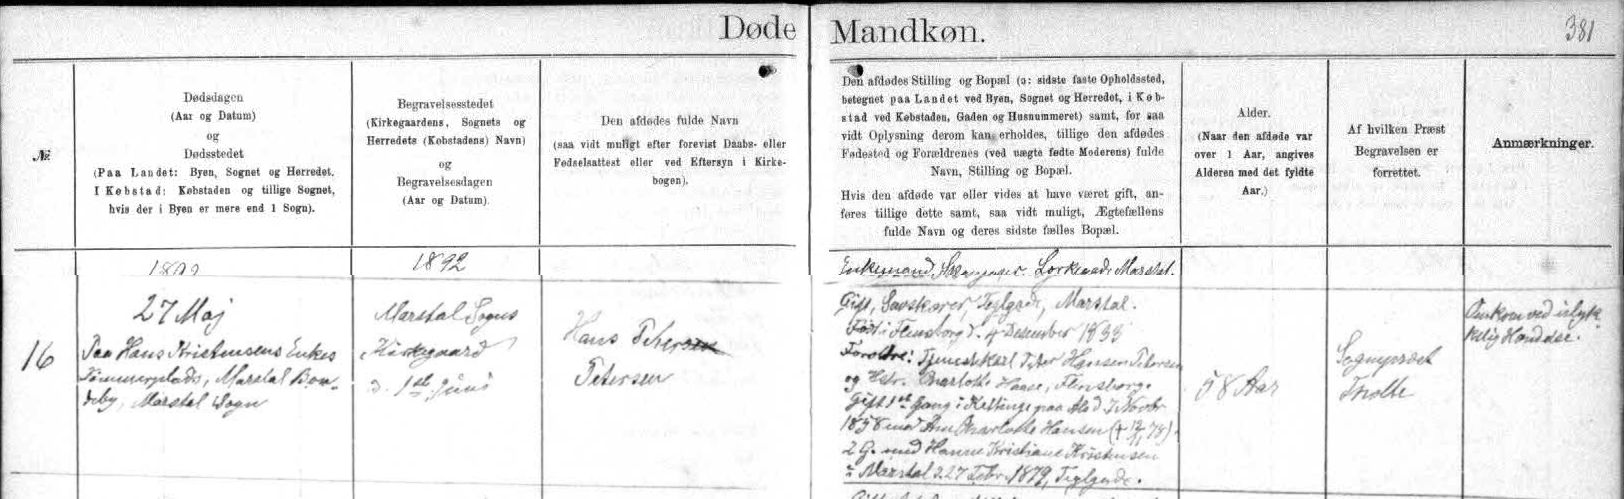 Døde Mandkøn.
381
№
Dødsdagen
(Aar og Datum)
og
Dødsstedet
(Paa Landet: Byen, Sognet og Herredet.
I Købstad: Købstaden og tillige Sognet,
hvis der i Byen er mere end 1 Sogn).
Begravelsesstedet
(Kirkegaardens, Sognets og
Herredets (Købstadens) Navn)
og
Begravelsesdagen
(Aar og Datum).
Den afdødes fulde Navn
(saa vidt muligt efter forevist Daabs- eller
Fødselsattest eller ved Eftersyn i Kirke-
bogen).
Den afdødes Stilling og Bopæl (ɔ: sidste faste Opholdssted,
betegnet paa Landet ved Byen, Sognet og Herredet, i Køb-
stad ved Købstaden, Gaden og Husnummeret) samt, for saa
vidt Oplysning derom kan erholdes, tillige den afdødes
Fødested og Forældrenes (ved uægte fødte Moderens) fulde
Navn, Stilling og Bopæl.
Hvis den afdøde var eller vides at have været gift, an-
føres tillige dette samt, saa vidt muligt, Ægtefællens
fulde Navn og deres sidste fælles Bopæl.
Alder.
(Naar den afdøde var
over 1 Aar, angives
Alderen med det fyldte
Aar.)
Af hvilken Præst
Begravelsen er
forrettet.
Anmærkninger.
1892
Enkemand, Marstal.
16
27 Maj
Paa Hans Kristensens Enkes
Tømmerplads, Marstal Bon-
deby, Marstal Sogn
Marstal Sogns
Kirkegaard
d. 1st Juni
Hans Petersen
Petersen
Gift, Savskærer, Teglgade, Marstal.
Født i Flensborg d. 4 December 1833
Forældre: Tjenestekarl Peter Hansen Petersen
og Hstr. Charlotte Haase, Flensborg.
Gift 1st Gang i Kettinge paa Als d. 7 Novbr
1858 med Ann Charlotte Hansen († 78).
2 G. med Hanne Kristiane Kristensen
i Marstal d. 27 Febr. 1879, Teglgade.
58 Aar
Sognepræst
Trolle
Omkom ved ulyk-
kelig Hændelse.